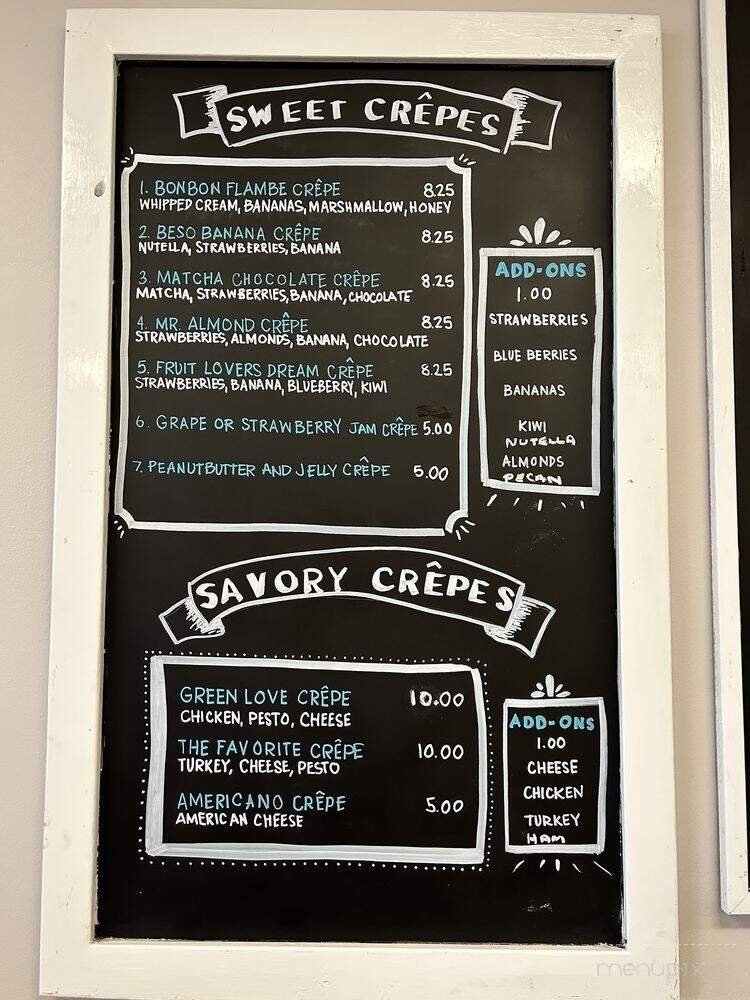 SWEET CRÊPES
1. BONBON FLAMBE CRÊPE 8.25
WHIPPED CREAM, BANANAS, MARSHMALLOW, HONEY
2. BESO BANANA CRÊPE 8.25
NUTELLA, STRAWBERRIES, BANANA
3. MATCHA CHOCOLATE CRÊPE 8.25
MATCHA, STRAWBERRIES, BANANA, CHOCOLATE
4. MR. ALMOND CRÊPE 8.25
STRAWBERRIES, ALMONDS, BANANA, CHOCOLATE
5. FRUIT LOVERS DREAM CRÊPE 8.25
STRAWBERRIES, BANANA, BLUEBERRY, KIWI
6. GRAPE OR STRAWBERRY JAM CRÊPE 5.00
7. PEANUTBUTTER AND JELLY CRÊPE 5.00
ADD-ONS
1.00
STRAWBERRIES
BLUE BERRIES
BANANAS
KIWI
NUTELLA
ALMONDS
PECAN
SAVORY CRÊPES
GREEN LOVE CRÊPE 10.00
CHICKEN, PESTO, CHEESE
THE FAVORITE CRÊPE 10.00
TURKEY, CHEESE, PESTO
AMERICANO CRÊPE 5.00
AMERICAN CHEESE
ADD-ONS
1.00
CHEESE
CHICKEN
TURKEY
HAM
menupix